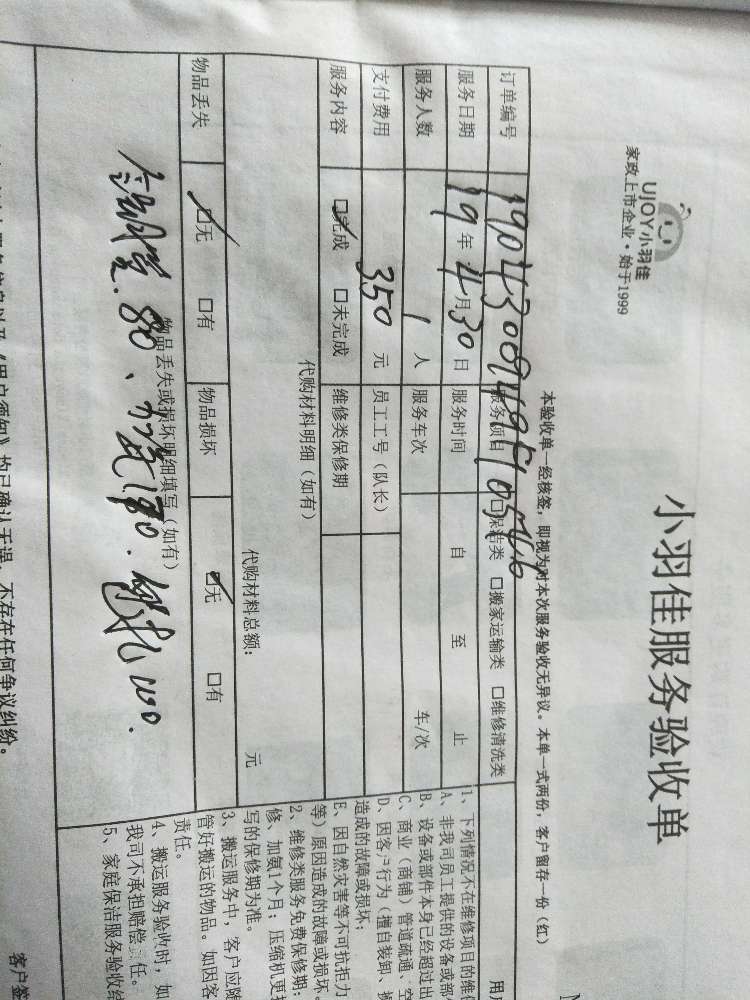 UJOY小羽佳
家政上市企业·始于1999
小羽佳服务验收单
本验收单一经核签，即视为对本次服务验收无异议。本单一式两份，客户留存一份（红）
订单编号
服务项目 □保洁类 □搬家运输类 □维修清洗类
服务日期 19年4月30日 服务时间 自 至 止
服务人数 1人 服务车次 车/次
支付费用 350元 员工工号（队长）
服务内容 □完成 □未完成 维修类保修期
代购材料明细（如有）
代购材料总额： 元
物品丢失 □无 □有 物品损坏 □无 □有
物品丢失或损坏明细填写（如有）
均已确认无误，不存在任何争议纠纷。
1、下列情况不在维修项目的维
A、非我司员工提供的设备或部
B、设备或部件本身已经超过出
C、商业（商铺）管道疏通、空
D、因客户行为（擅自装卸、
造成的故障或损坏；
E、因自然灾害等不可抗拒力
等）原因造成的故障或损坏。
2、维修类服务免费保修期：
修、加氨1个月；压缩机更
写的保修期为准。
3、搬运服务中，客户应随
管好搬运的物品。如因客
责任。
4、搬运服务验收时，如
我司不承担赔偿责任。
5、家庭保洁服务验收
客户签